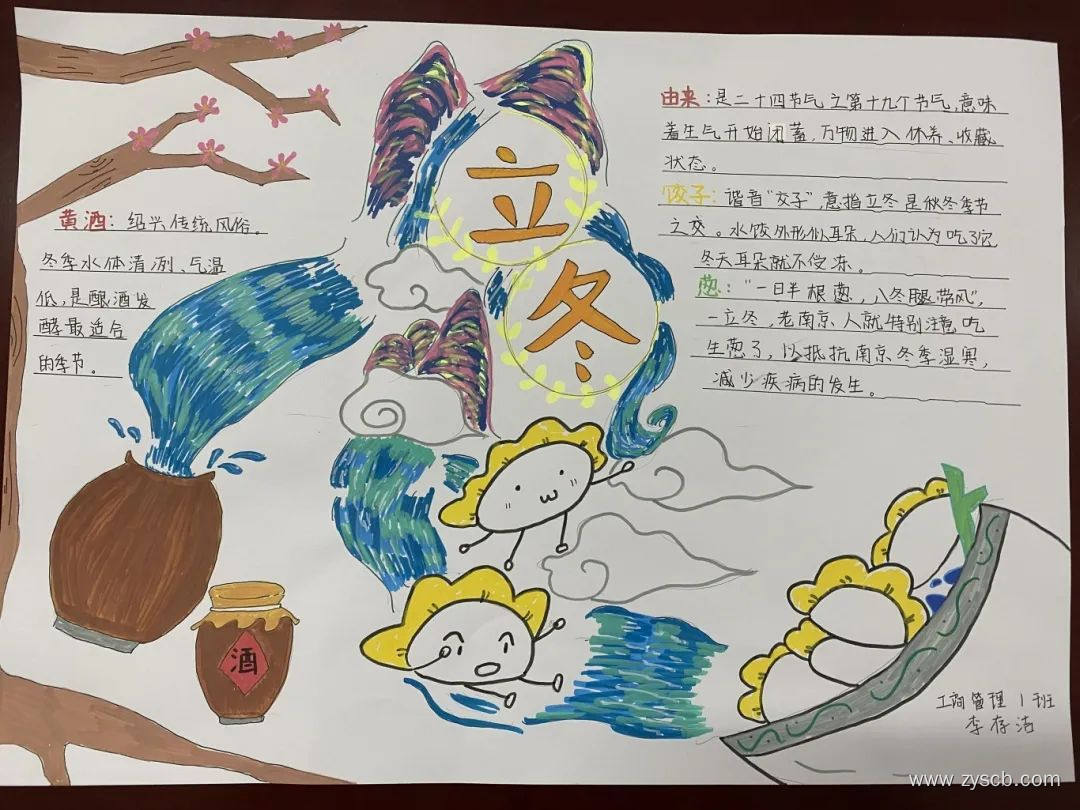 立
冬
黄酒：绍兴传统风俗。
冬季水体清冽、气温
低，是酿酒发
酵最适合
的季节。
酒
由来：是二十四节气立第十九个节气，意味
着生气开始闭蓄，万物进入休养、收藏
状态。
饺子：谐音"交子"，意指立冬是秋冬季节
之交。水饺外形似耳朵，人们认为吃了它
冬天耳朵就不受冻。
葱："一日半根葱，入冬腿带风"，
一立冬，老南京人就特别注意吃
生葱了，以抵抗南京冬季湿寒，
减少疾病的发生。
工商管理1班
李存洁
www.zyscb.com